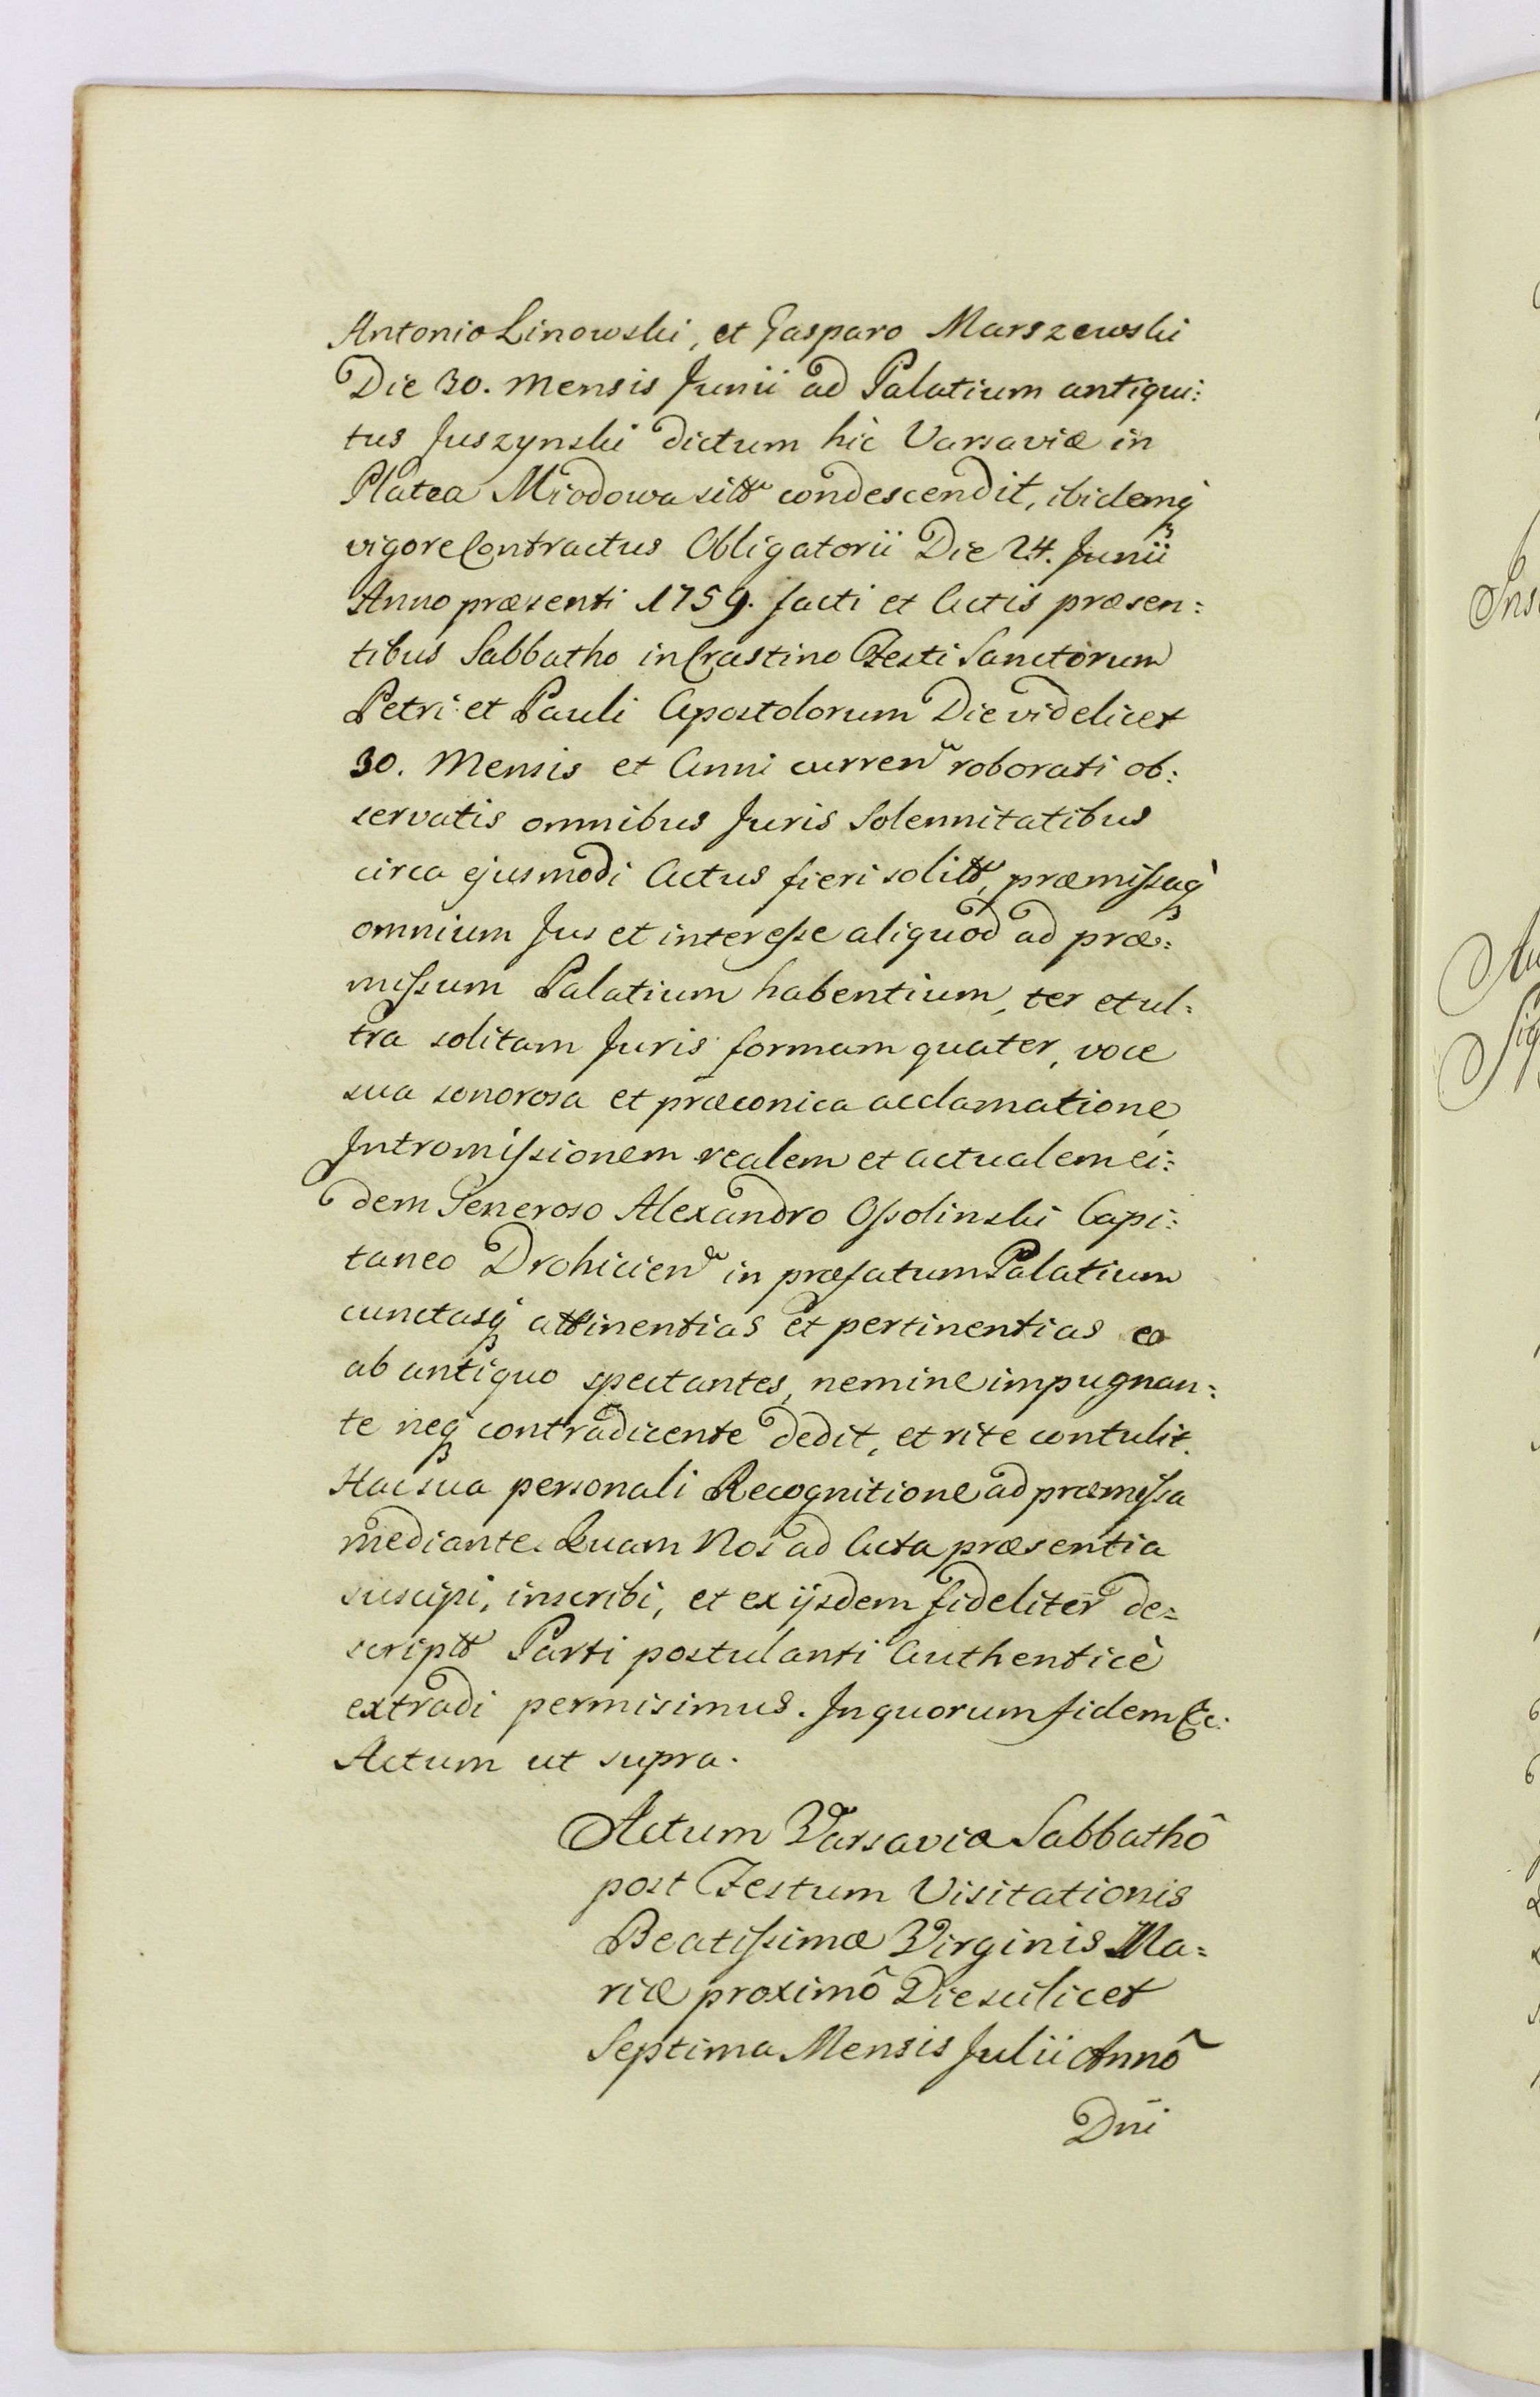 Antonio Linowski, et Gasparo Marszewski
Die 30. Mensis Junii ad Palatium antiqui:
tus Juszynski dictum hic Varsaviæ in
Platea Miodowa sitt condescendit, ibidemq
vigore Contractus Obligatorii Die 24. Junii
Anno præsenti 1759. facti et Actis præsen:
tibus Sabbatho in Crastino Festi Sanctorum
Petri et Pauli Apostolorum Die videlicet
30. Mensis et Anni curren roborati ob:
servatis omnibus Juris Solennitatibus
circa ejusmodi Actus fieri solitt, præmissaq
omnium Jus et interesse aliquod ad præ:
missum Palatium habentium, ter et ul:
tra solitam Juris formam quater, voce
sua sonorosa et præconica acclamatione,
Intromissionem realem et actualem ei:
dem Generoso Alexandro Ossolinski Capi:
taneo Drohicien in præfatum Palatium
cunctasq attinentias et pertinentias eo
ab antiquo spectantes, nemine impugnan:
te neq contradicente dedit, et rite contulit.
Hac sua personali Recognitione ad præmissa
mediante. Quam Nos ad Acta præsentia
suscipi, inscribi, et ex ijsdem fideliter de=
scriptt Parti postulanti Authenticè
extradi permisimus. In quorum fidem &c:
Actum ut supra.
Actum Varsaviæ Sabbathô
post Festum Visitationis
Beatissimæ Virginis Ma=
riæ proximô Die scilicet
Septima Mensis Julii Annô
Dni
Ins